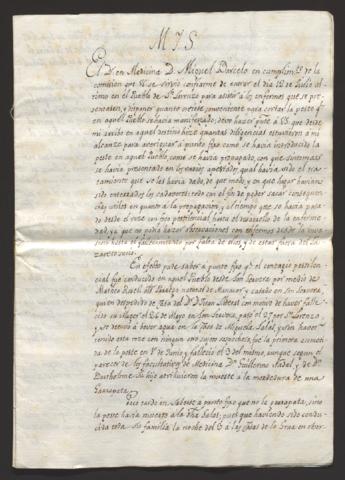 M. I. S.
El Dr. en Medicina D. Miquel Barcelo en cumplimto. de la
comision que V.S. se sirvió confiarme de en el dia 12 de Julio ul-
timo en el Pueblo de Sn. Lorenzo para asistir a los enfermos que se pre-
sentasen, y disponer quanto creiese conveniente para cortar la peste qe.
en aquel Pueblo se havia manifestado; devo hacer prete. á V.S. que desde
mi arribo en aquel destino hize quantas diligencias estuvieron á mi
alcanze para averiguar á punto fijo como se havia introducido la
peste en aquel Pueblo, como se havia propagado, con que sintomas
se havia presentado en los varios apestados, qual havia sido el tra-
tamiento que se les havia dado, de que modo, y en que lugar havian
sido enterrados los cadaveres; todo con el fin de poder sacar consequen-
cias utiles en quanto á la propagacion, y al tiempo que se havia pasa-
do desde el roce con foco pestilencial hasta el desarrollo de la enferme-
dad, ya que no podia hacer observaciones con enfermos desde la inva-
sion hasta el fallecimiento por falta de ellos, y de estar fuera del La-
zareto sucio.
En efecto pude saber á punto fijo qe. el contagio pestilen-
cial fue conducido en aquel Pueblo desde Son Severa por medio de
Mateo Rosell natural de Manacor, y casado en Sn. Lorenzo
que en despedido de casa del Dr. Dn. Juan con motivo de haver falle-
cido su Muger el 26 de Mayo en Son Servera, pasó el 27 por Sn. Lorenzo
y se detuvo á bever agua en la Casa de Miquela Salas, quien havien-
do tenido este roce con ningun otro sugeto sospechoso fue la primera acometi-
da de la peste en 1º de Junio y falleció el 3 del mismo, aunque segun el
parecer de los facultativos de Medicina Dn. Guillermo Nadal, y de Dn.
Bartholomé su hijo atribuieron la muerte á la mordedura de una
Garrapata.
Poco tardó en saberse á punto fijo que no la garrapata, sino
la peste havia muerto á la tha. Salas; pues que haviendo sido condu-
cida toda su familia la noche del 6 á las Casas de la Grua en obser-